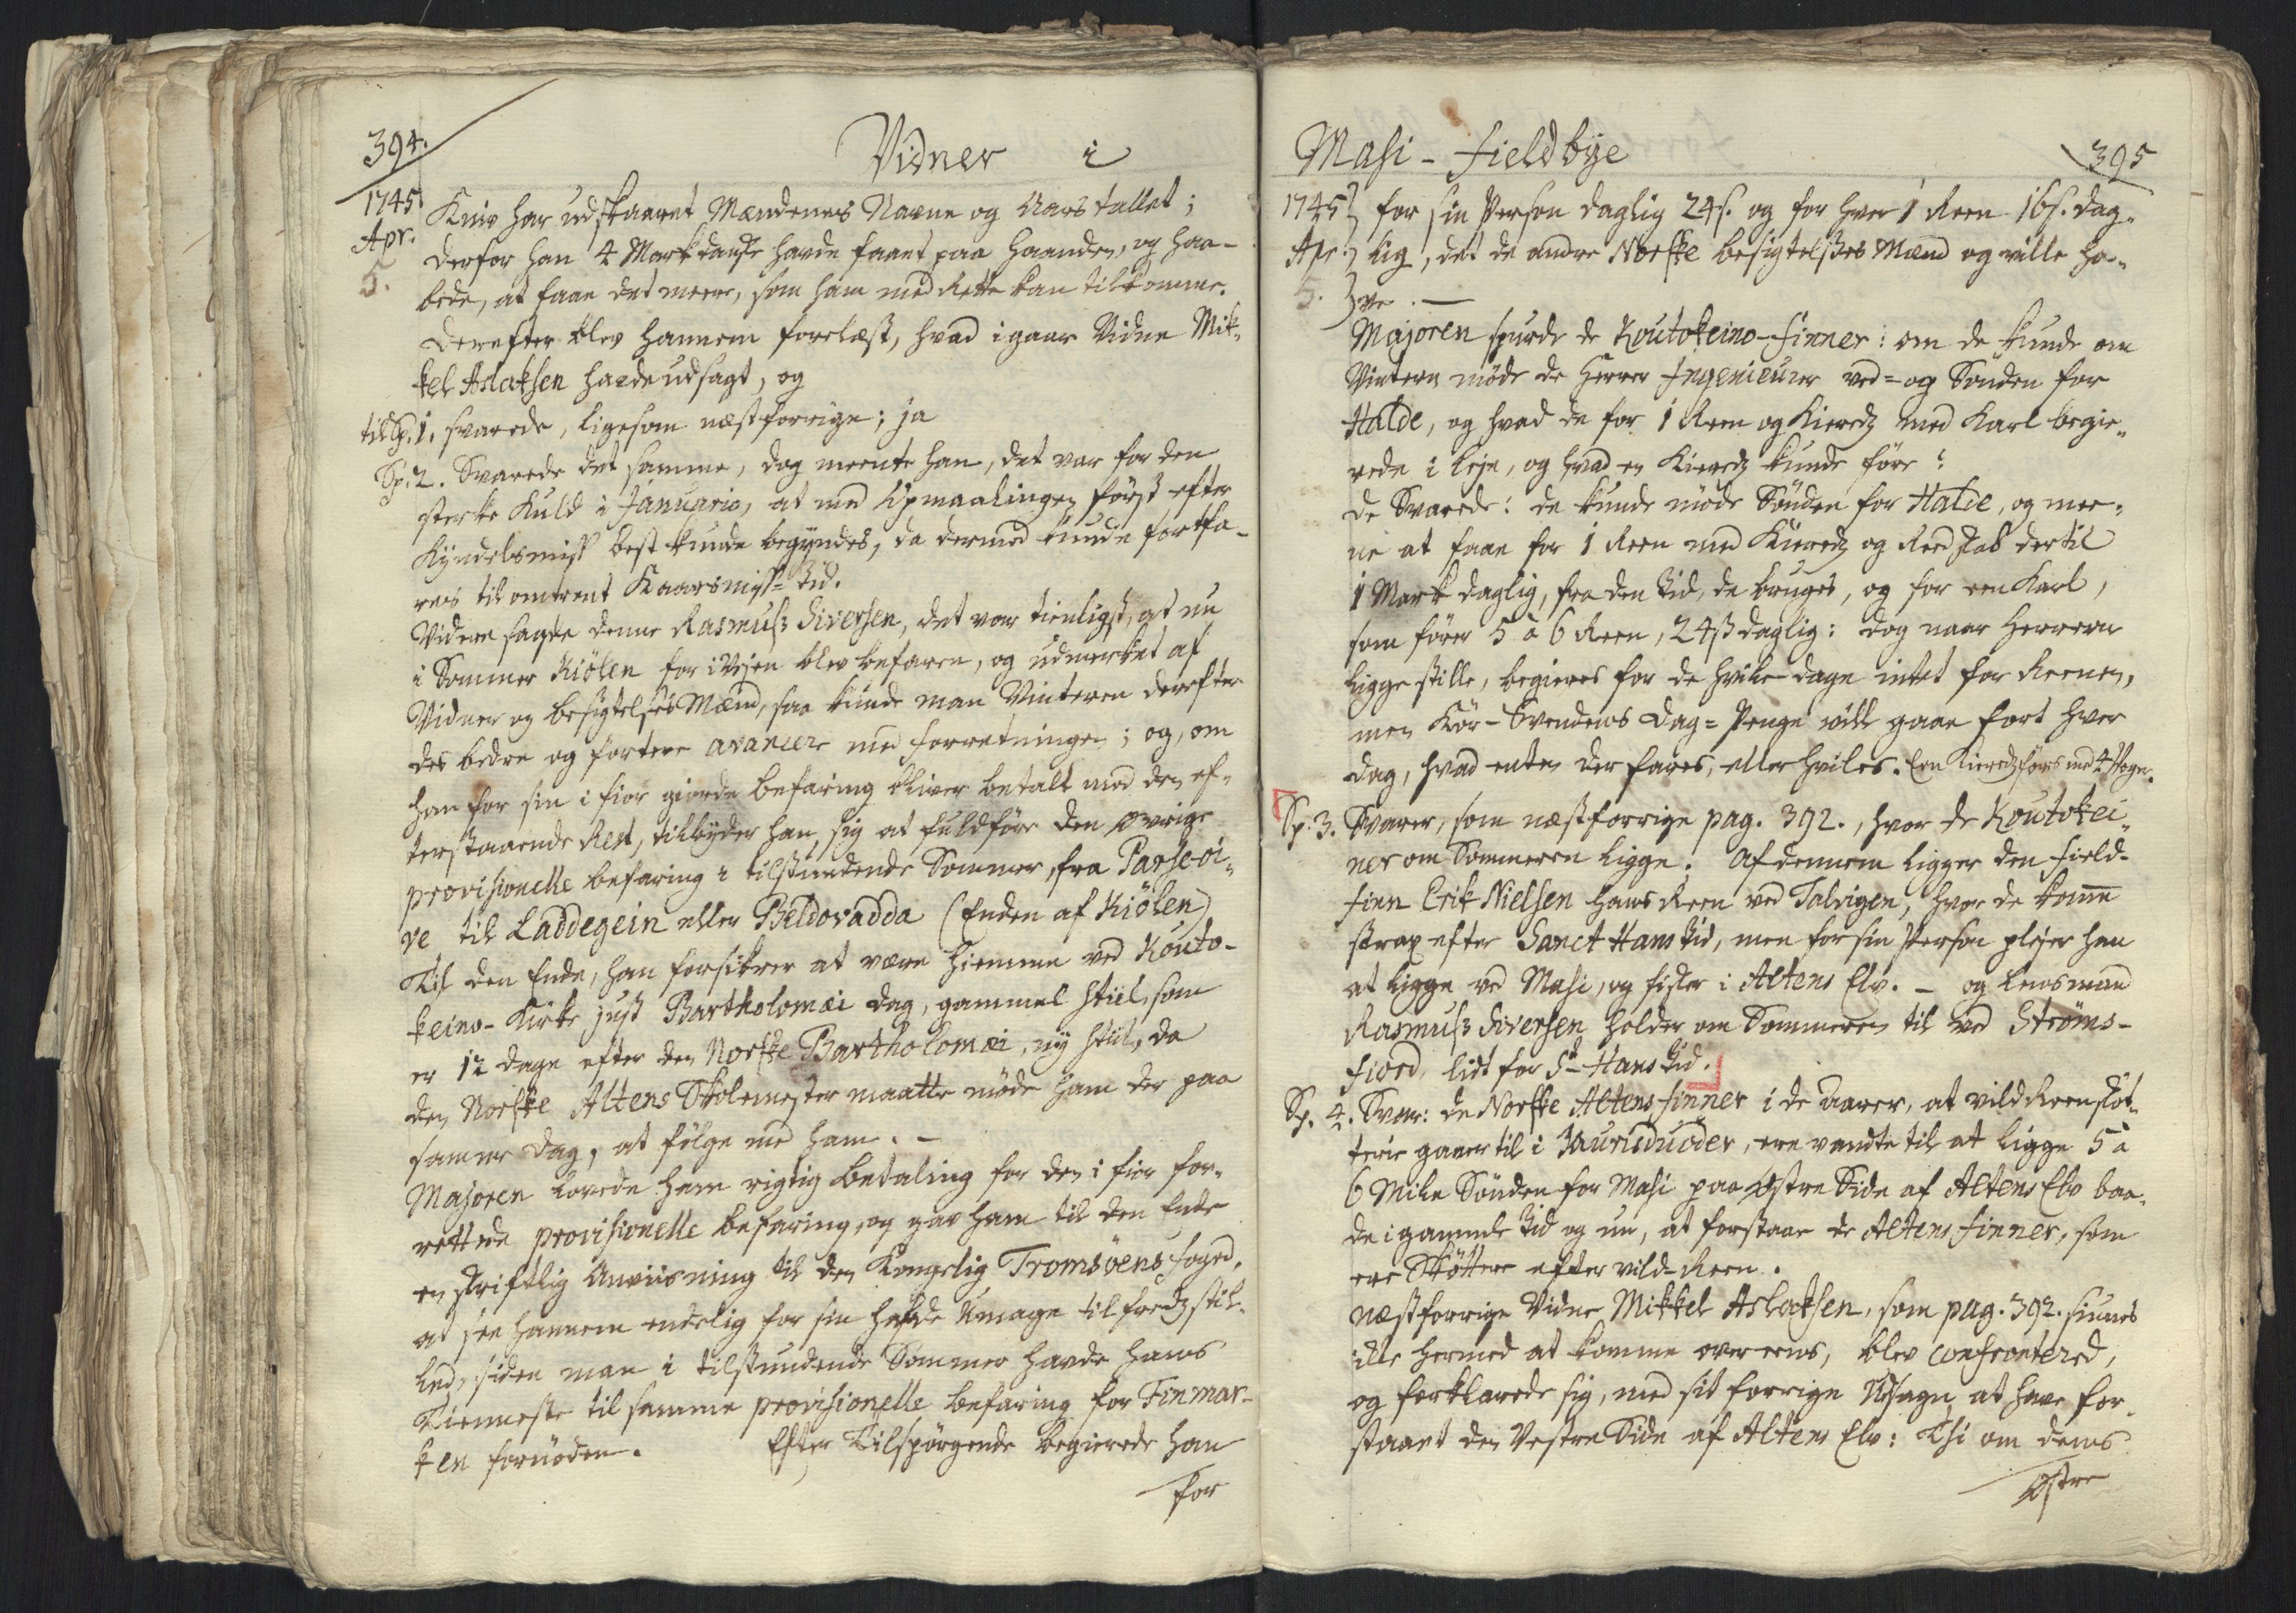 394.
Vidner i
1745 Kniv har udskaaret Mændenes Navne og Aarstallet;
Apr. derfor han 4 Mark danske havde faaet paa Haanden, og haa-
5. bede, at faae det meere, som ham med Rette kan tilkomme.
Derefter blev hannem forelæst, hvad i gaar Vidne Mik-
kel Aslaksen havde udsagt, og
til Sp. 1. svarede, ligesom næstforrige; ja
Sp: 2. Svarede det samme, dog meente han, det var for den
sterke Kuld i Januario, at med Opmaalingen först efter
Kyndelsmiss best kunde begyndes, da dermed kunde fortfa-
res til omtrent Kaarsmiss-Tid.
Videre sagde denne Rasmuss Siversen, det var tienligst, at nu
i Sommer Kiölen for i Vejen blev befaren, og udmerket af
Vidner og besigtelses Mænd, saa kunde man Vinteren derefter
des bedre og fortere avancere med forretningen; og, om
han for sin i fior giorde befaring bliver betalt med den ef-
terstaaende Rest, tilbyder han sig at fuldföre den øvrige
provisionelle befaring i tilstundende Sommer, fra Parseoi-
ve til Laddegein eller Beldovadda (Enden af Kiölen)
Til den Ende, han forsikrer at være hiemme ved Kouto-
keino-Kirke just Bartholomæi dag, gammel Stiil, som
er 12 dage efter den Norske Bartholomæi, ny Stiil, da
den Norske Altens Skolemester maatte møde ham der paa
samme dag, at fölge med ham. -
Majoren lovede ham rigtig betaling for den i fior for-
rettede provisionelle befaring, og gav ham til den Ende
en skriftlig Anviisning til den Kongelig Tromsöens foged,
at see hannem endelig for sin hafde Umage tilfredzstil-
led, siden man i tilstundende Sommer havde hans
Tienneste til samme provisionelle befaring for Finmar-
ken fornöden. Efter Tilspörgende begierede han
for
Masi-Fieldbye
395
1745 for sin Person daglig 24 s. og for hver 1 Reen 16 s. dag-
Apr. lig, det de andre Norske besigtelsses Mænd og ville ha-
5. ve. -
Majoren spurde de Koutokeino-Finner: om de kunde om
Vintern möde de Herrer Ingenieurer ved- og Sönden for
Halde, og hvad de for 1 Reen og Kieredz med Karl begie-
rede i leje, og hvad en Kieredz kunde före?
De Svarede: de kunde möde Sönden for Halde, og mee-
ne at faae for 1 Reen med Kieredz og Redskab dertil
1 Mark daglig, fra den Tid, de bruges, og for een Karl,
som förer 5 à 6 Reen, 24 ss daglig: dog naar Herrerne
ligge stille, begieres for de hvile-dage intet for Reenen,
men Kör-Svendenes Dag-Penge vill gaae fort hver
dag, hvad enten der fares, eller hviles. Een Kieredz förer med 4 Voger.
Sp: 3. Svarer, som næstforrige pag. 392., hvor de Koutokei-
ner om Sommeren ligge. Af dennem ligger den Field-
finn Erik Nielsen hans Reen ved Talvigen, hvor de komme
strax efter Sanct Hans Tid, men for sin Person plejer han
at ligge ved Masi, og fisker i Altens Elv. - og Lensmand
Rasmuss Siversen holder om Sommeren til ved Ströms-
fiord, lidt for St Hans Tid.
Sp. 4. Svar: de Norske Altens finner i de Aarer, at vild Reenskøt-
terie gaaer til i Jaurisduöder, ere vandte til at ligge 5 à
6 Mile Sönden for Masi paa østre Side af Altens Elv baa-
de i gammel Tid og nu, at forstaae de Altens finner, som
ere Skötter efter vild-Reen.
næstforrige Vidne Mikkel Aslaksen, som pag. 392. siunes
icke hermed at komme overeens, blev confrontered,
og forklarede sig, med sit forrige Udsagn at have for-
staaet den Vestre Side af Altens Elv: Thi om dens
østre